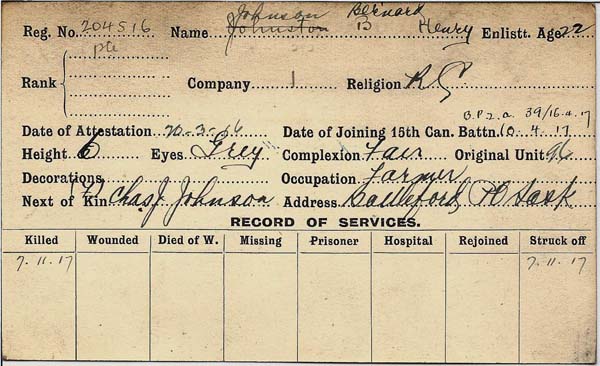 Johnson Bernard
Reg. No. 204516 Name Johnston B Henry Enlistt. Age 22
Rank pte Company 1 Religion R C
B.P.2.a. 39/16.4.17
Date of Attestation 20-3-16 Date of Joining 15th Can. Battn. 10.4.17
Height 6 Eyes Grey Complexion Fair Original Unit 96
Decorations Occupation Farmer
Next of Kin (F) Chas J. Johnson Address Battleford, PO Sask
RECORD OF SERVICES.
Killed Wounded Died of W. Missing Prisoner Hospital Rejoined Struck off
7.11.17 7.11.17